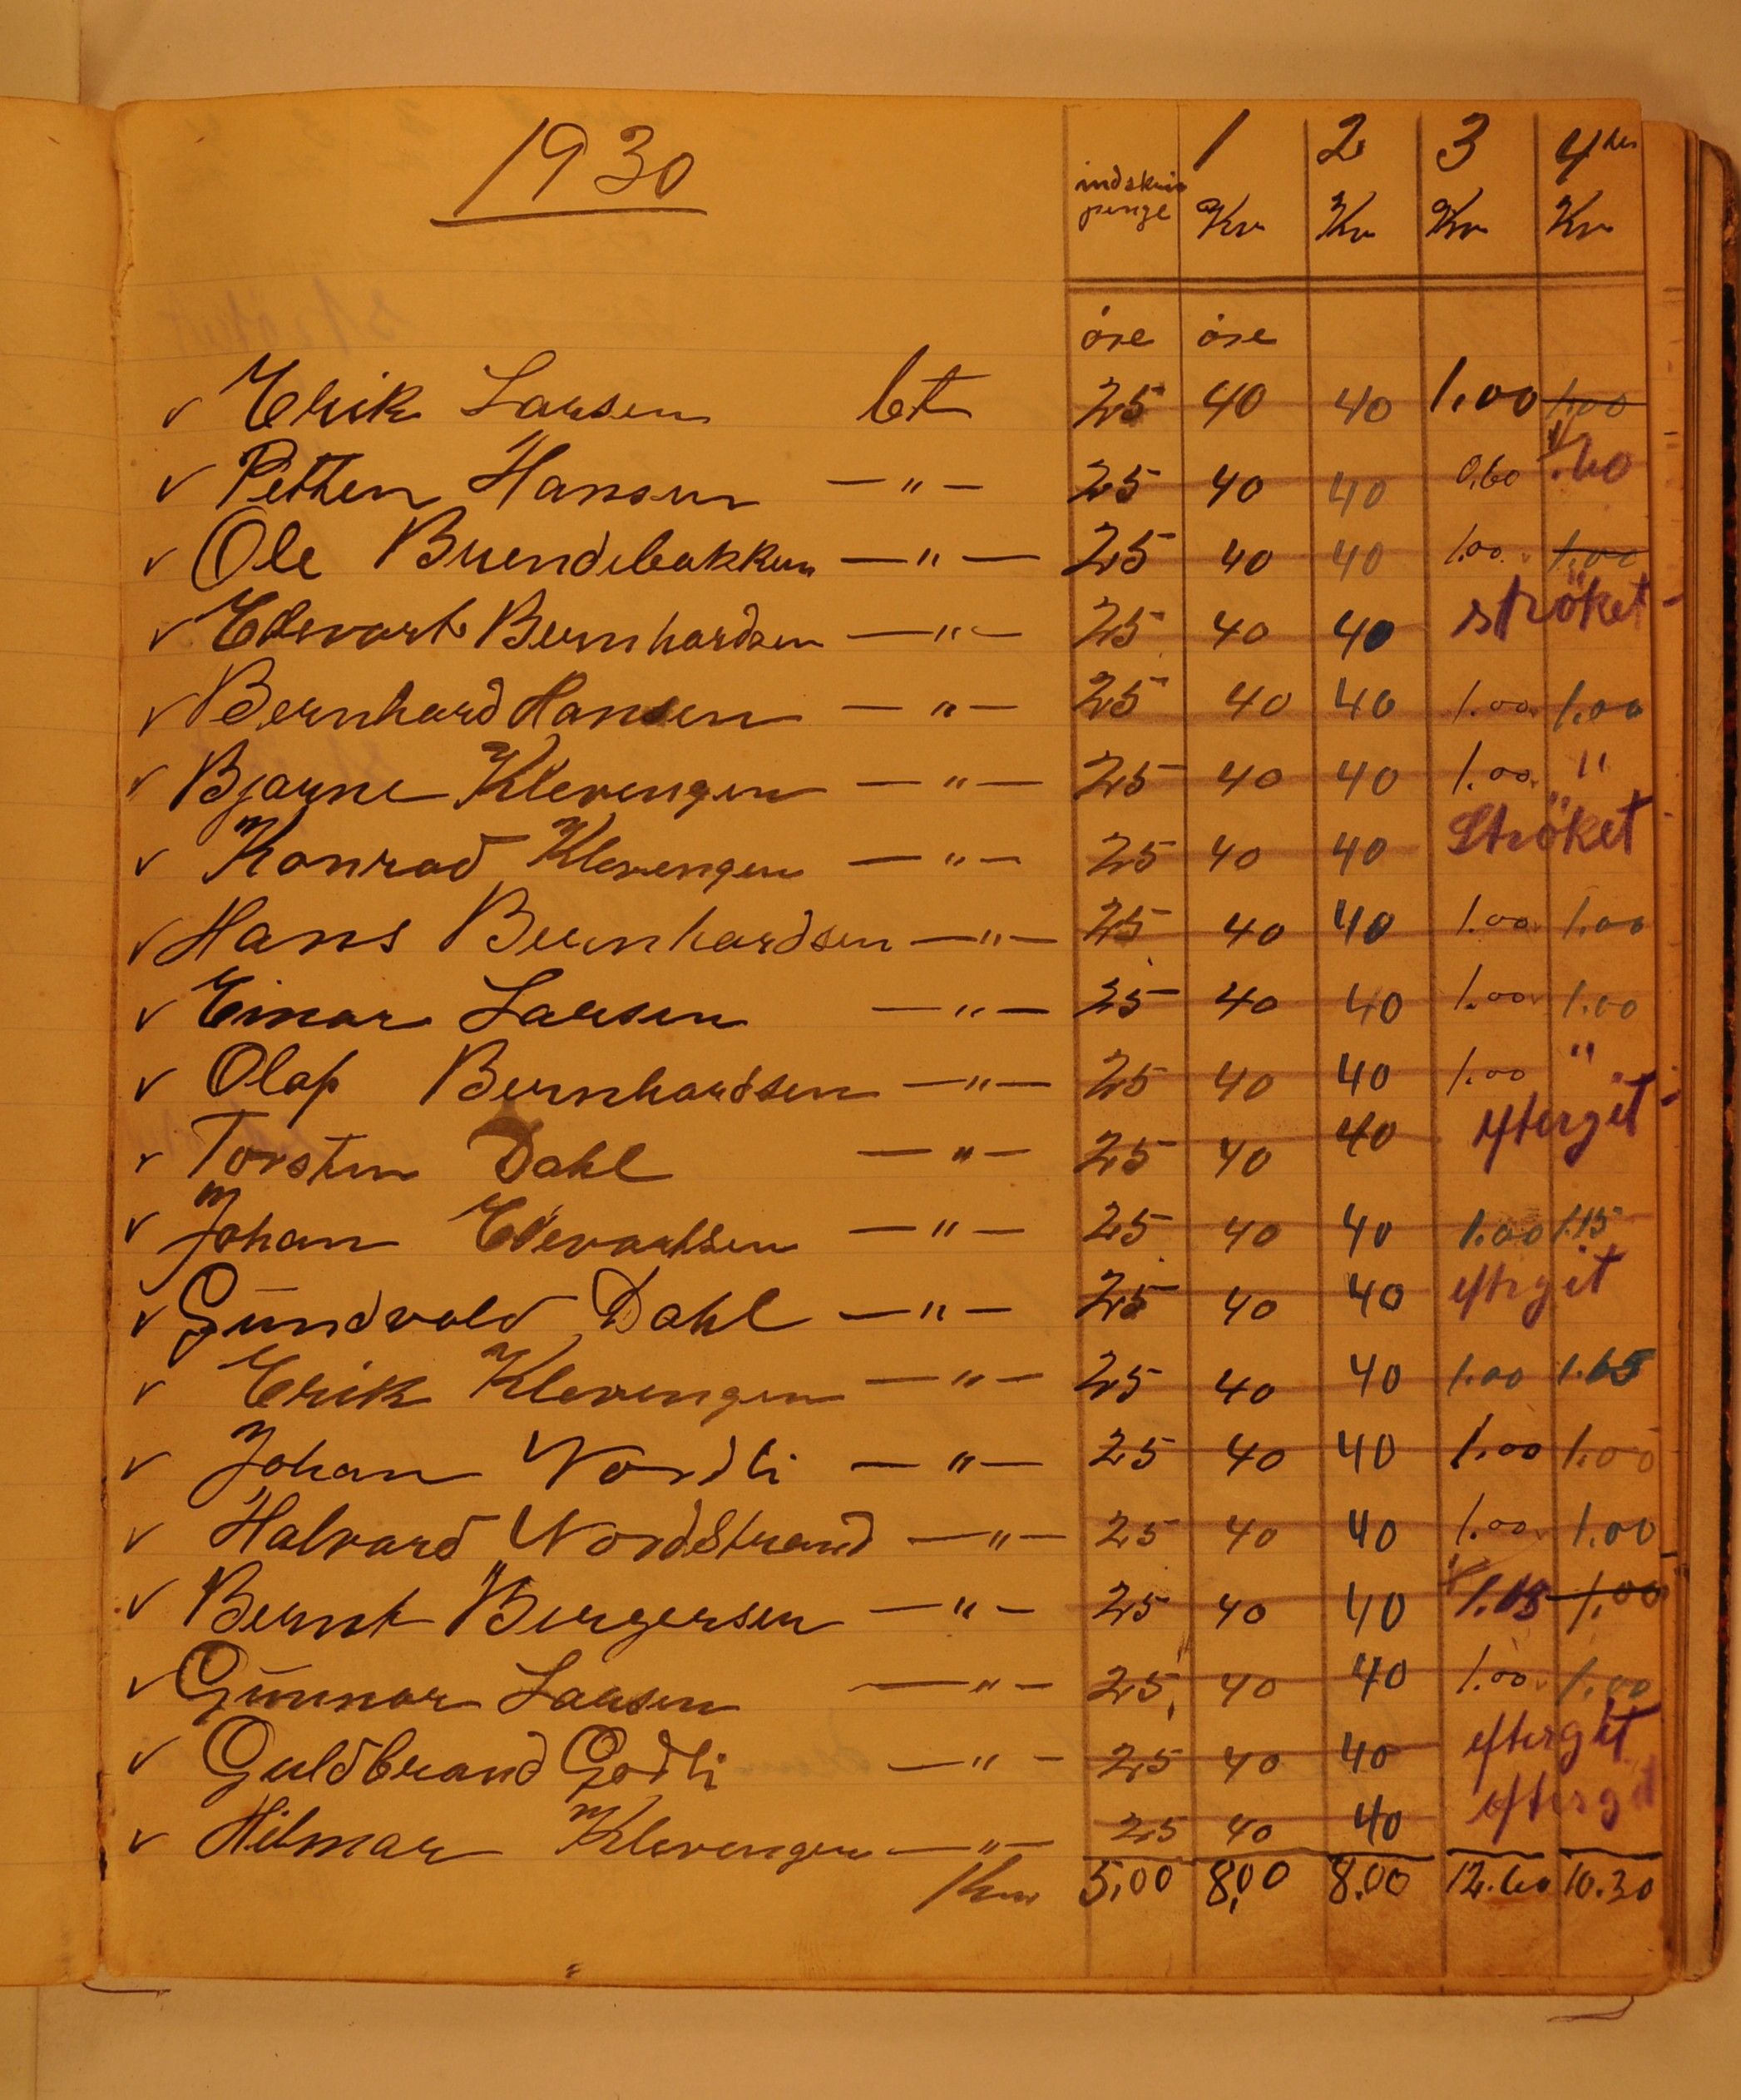 1930
indskriv penge 1 Kv 2 Kv 3 Kv 4de Kv
öre öre
v Erik Larsen bet 25 40 40 1.00 1.00
v Petter Hansen —"— 25 40 40 0,60 .60
v Ole Brendebakken —"— 25 40 40 1.00 1.00
v Edevart Bernhardsen —"— 25 40 40 ströket
v Bernhard Hansen —"— 25 40 40 1.00 1.00
v Bjarne Klevengen —"— 25 40 40 1.00 "
v Konrad Klevengen —"— 25 40 40 Ströket
v Hans Bernhardsen —"— 25 40 40 1.00 1.00
v Einar Larsen —"— 25 40 40 1.00 1.00
v Olaf Bernhardsen —"— 25 40 40 1.00 "
v Torsten Dahl —"— 25 40 40 eftergit
v Johan Edevartsen —"— 25 40 40 1.00 1.15
v Gŭndvald Dahl —"— 25 40 40 eftrgit
v Erik Klevengen —"— 25 40 40 1.00 1.65
v Johan Nordli —"— 25 40 40 1.00 1.00
v Halvard Nordstrand —"— 25 40 40 1.00 1.00
v Bernt Bergersen —"— 25 40 40 1.00
v Gŭnnar Larsen —"— 25 40 40 1.00 1.00
v Guldbrand Godli —"— 25 40 40 eftergit
v Hilmar Klevengen —"— 25 40 40 eftergit
5,00 8,00 8.00 12.60 10.30